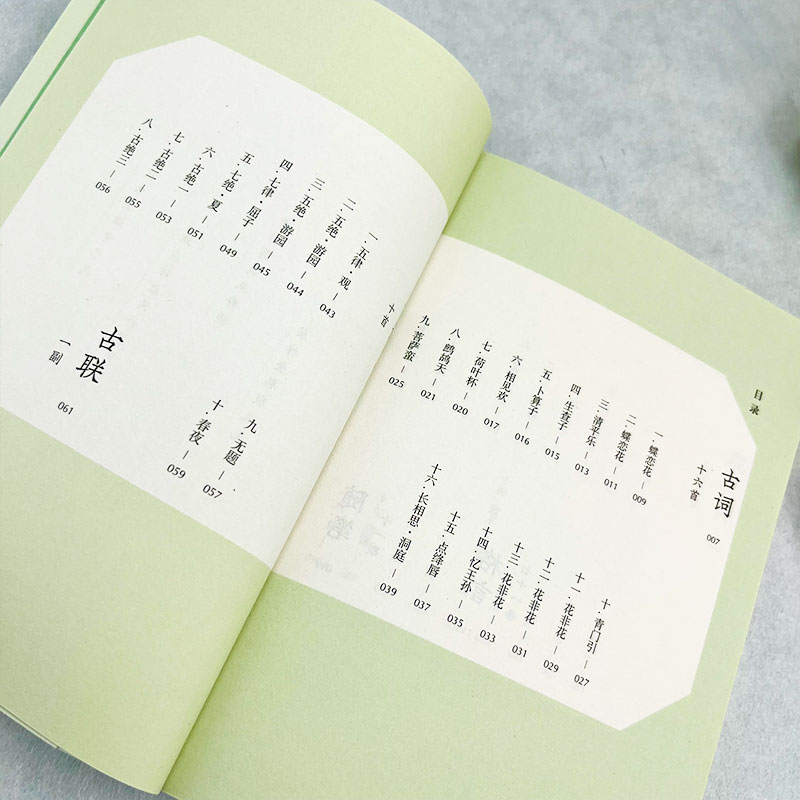 目录
古词
十六首
007
一·蝶恋花—009
二·蝶恋花—011
三·清平乐—013
四·生查子—015
五·卜算子—016
六·相见欢—017
七·荷叶杯—020
八·鹧鸪天—021
九·菩萨蛮—025
十·青门引—027
十一·花非花—029
十二·花非花—031
十三·花非花—033
十四·忆王孙—035
十五·点绛唇—037
十六·长相思·洞庭—039
十首
一·五律·观—043
二·五绝·游园—044
三·五绝·游园—045
四·七律·屈子—049
五·七绝·夏—051
六·古绝一—053
七·古绝二—055
八·古绝三—056
九·无题—057
十·春夜—059
古联
一副
061